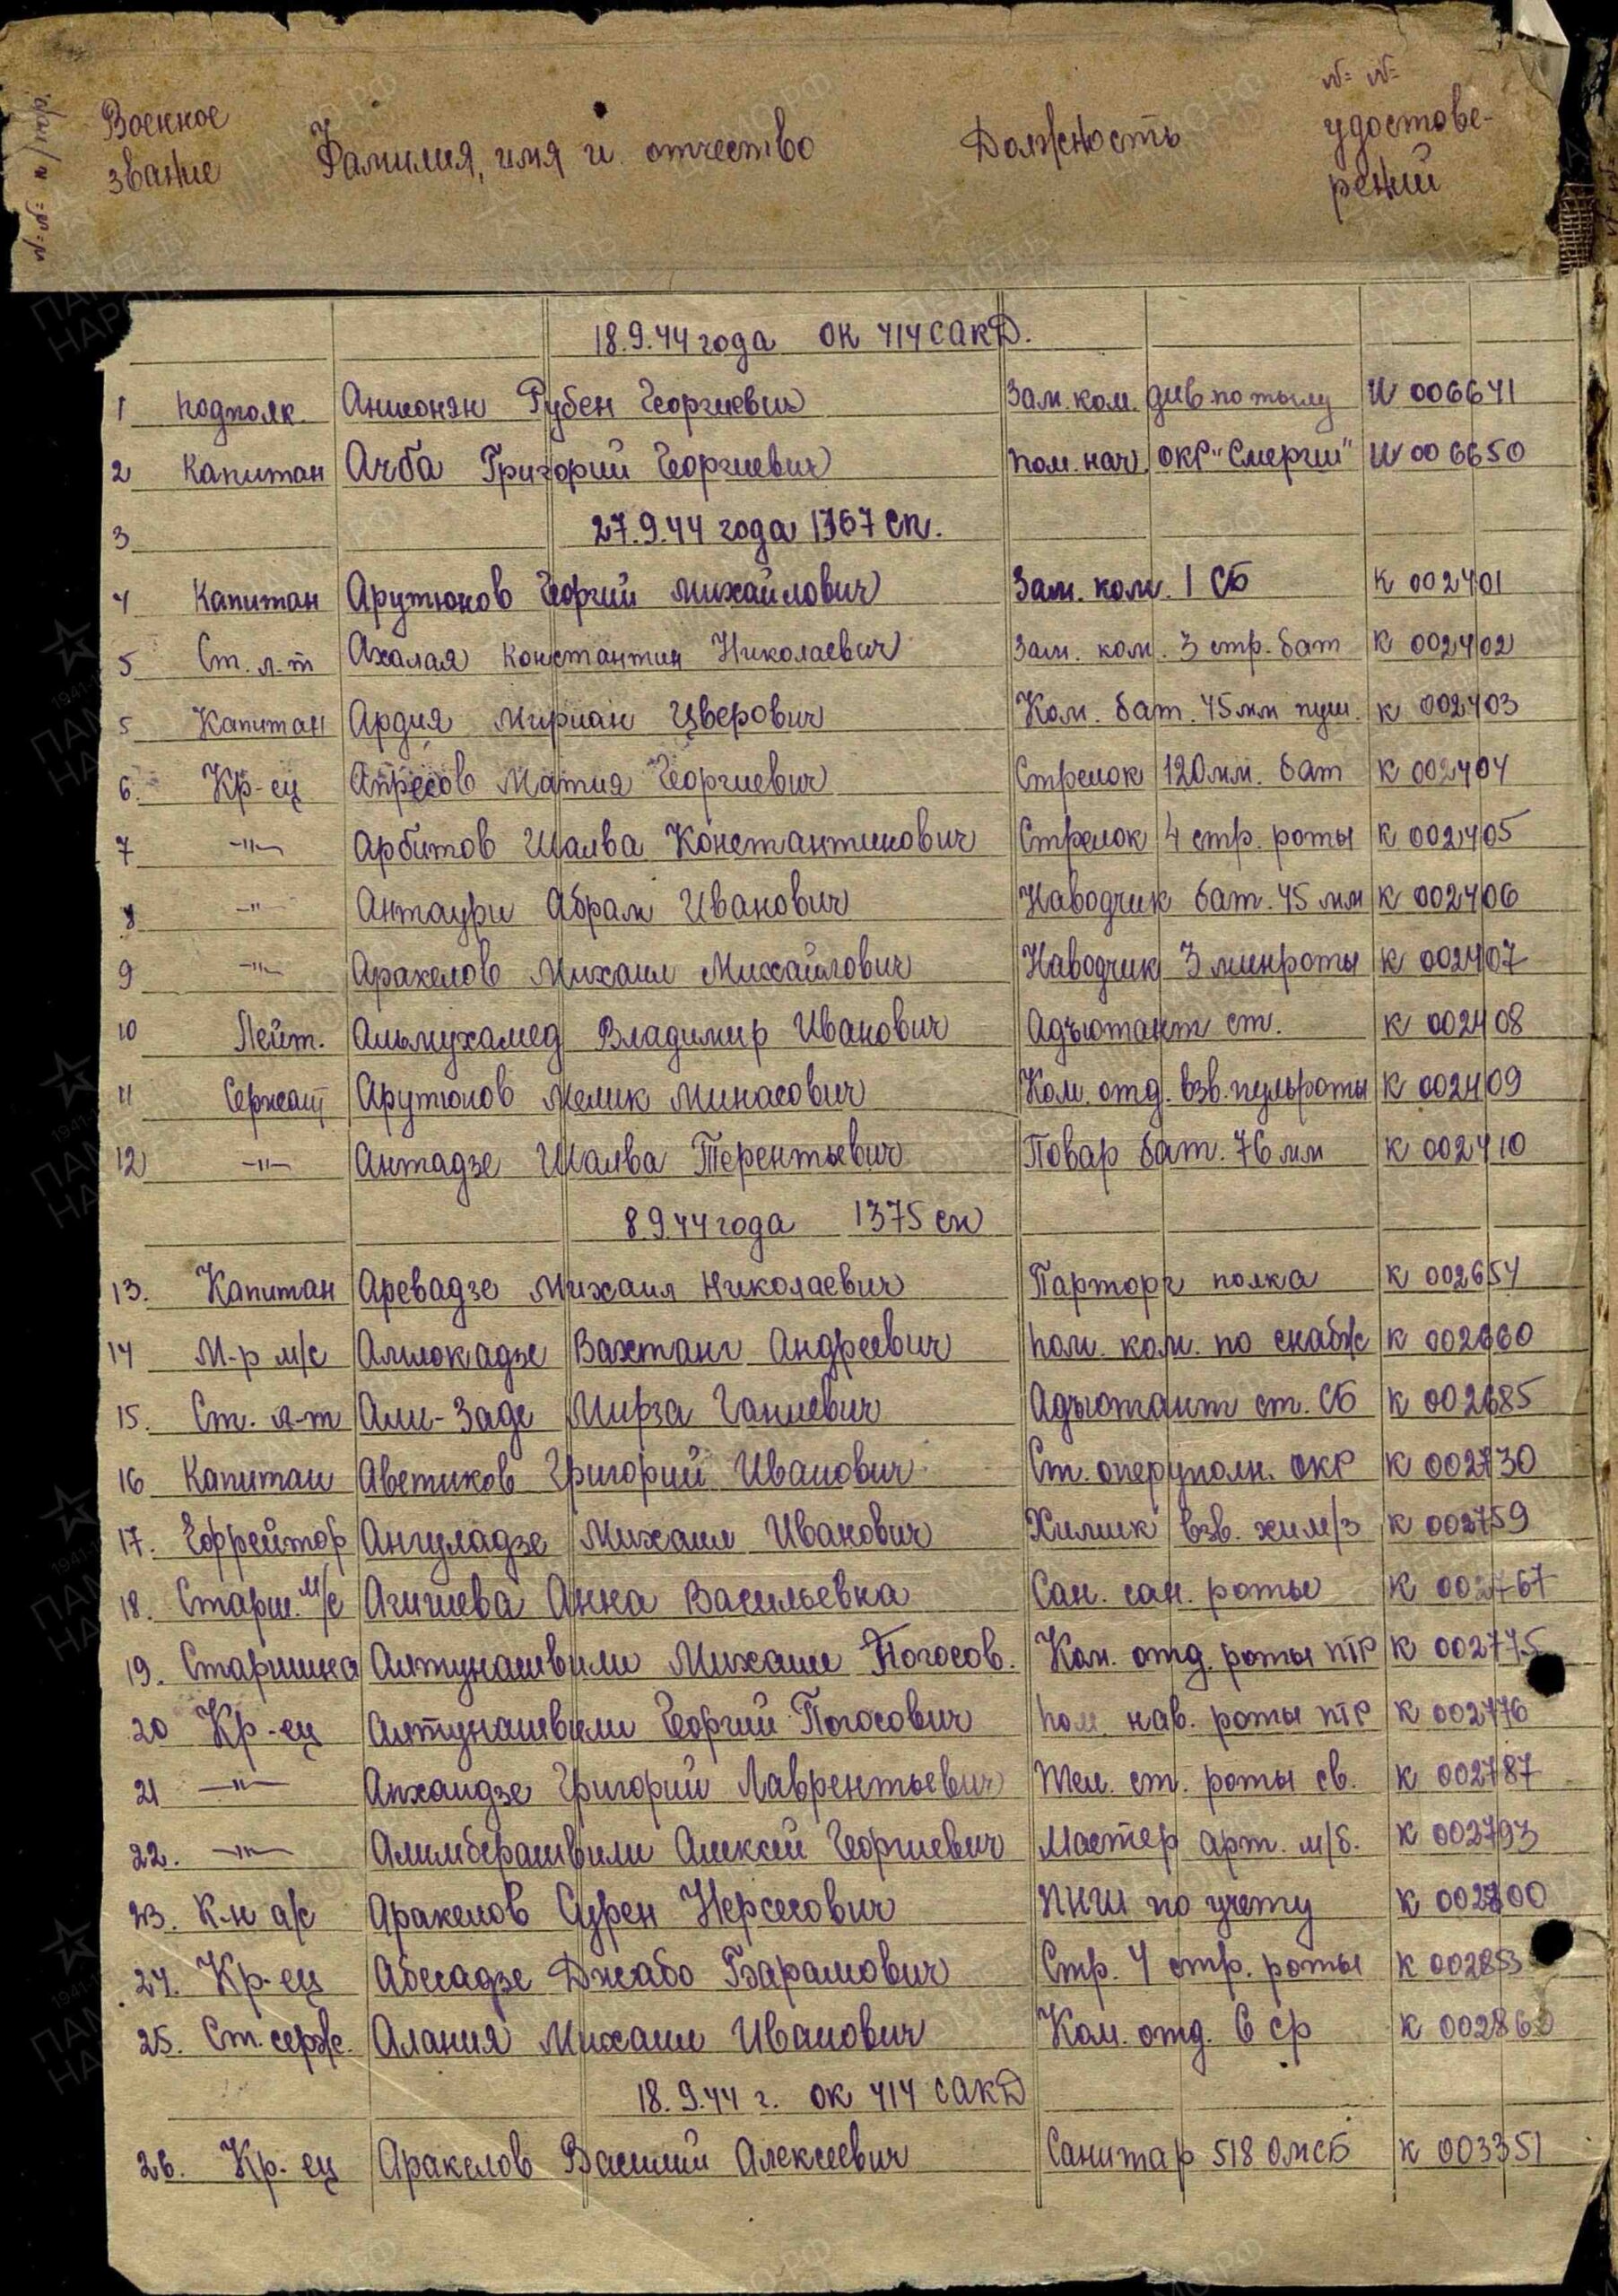 №№ п/п
Военное звание
Фамилия, имя и отчество
Должность
№ №
удостове-
рений
18.9.44 года ОК 414 САКД.
1 подполк. Рубен Георгиевич Зам. ком. див по тылу И 006641
2 Капитан Ачба Григорий Георгиевич пом. нач. ОКР "Смерш" И 006650
3 27.9.44 года 1367 сп.
4 Капитан Арутюнов Георгий Михайлович Зам. ком. 1 СБ К 002401
5 Ст. л-т Ахалая Константин Николаевич Зам. ком. 3 стр. бат К 002402
5 Капитан Ардия Мириан Цверович Ком. бат. 45 мм пуш. К 002403
6. Кр-ец Апресов Матия Георгиевич Стрелок 120 мм. бат К 002404
7 -"- Арбитов Шалва Константинович Стрелок 4 стр. роты К 002405
8 -"- Антаури Абрам Иванович Наводчик бат. 45 мм К 002406
9 -"- Аракелов Михаил Михайлович Наводчик 3 минроты К 002407
10 Лейт. Альмухамед Владимир Иванович Адъютант ст. К 002408
11 Сержант Арутюнов Мелик Минасович Ком. отд. взв. пульроты К 002409
12 -"- Антадзе Шалва Терентьевич Повар бат. 76 мм К 002410
8.9.44 года 1375 сп
13. Капитан Аревадзе Михаил Николаевич Парторг полка К 002654
14 М-р м/с Вахтанг Андреевич пом. ком. по снабж К 002660
15. Ст. л-т Али-Заде Мирза Ганиевич Адъютант ст. СБ К 002685
16 Капитан Аветиков Григорий Иванович Ст. оперуполн. ОКР К 002730
17. Ефрейтор Ангуладзе Михаил Иванович Химик взв. хим/з К 002759
18. Старш. м/с Анна Васильевна Сан. сан. роты К 002767
19. Старшина Алтунашвили Михаил Погосов. Ком. отд. роты ПТР К 002775
20 Кр-ец Алтунашвили Георгий Погосович пом. нав. роты ПТР К 002776
21 -"- Апхаидзе Григорий Лаврентьевич Тел. ст. роты св. К 002787
22. -"- Алимберашвили Алексей Георгиевич Мастер арт. м/б. К 002793
23. К-н а/с Аракелов Сурен Нерсесович ПНШ по учету К 002800
24. Кр-ец Абесадзе Джабо Стр. 4 стр. роты К 002853
25. Ст. серж. Алания Михаил Иванович Ком. отд. 6 ср К 002860
18.9.44 г. ОК 414 САКД
26. Кр-ец Аракелов Василий Алексеевич Санитар 518 ОМСБ К 003351